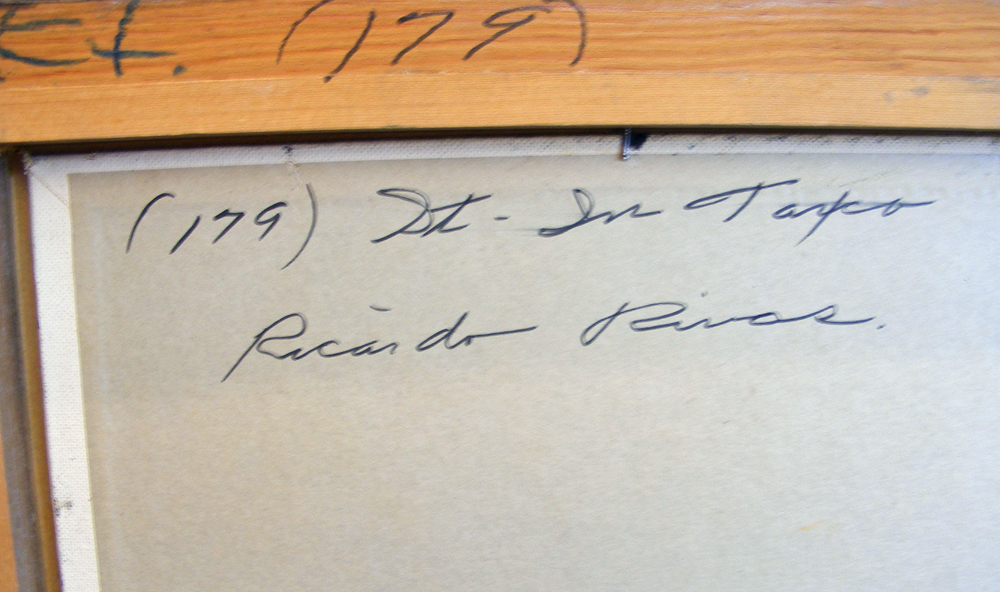 (179)
(179) St. In Taxco
Ricardo Rivas.